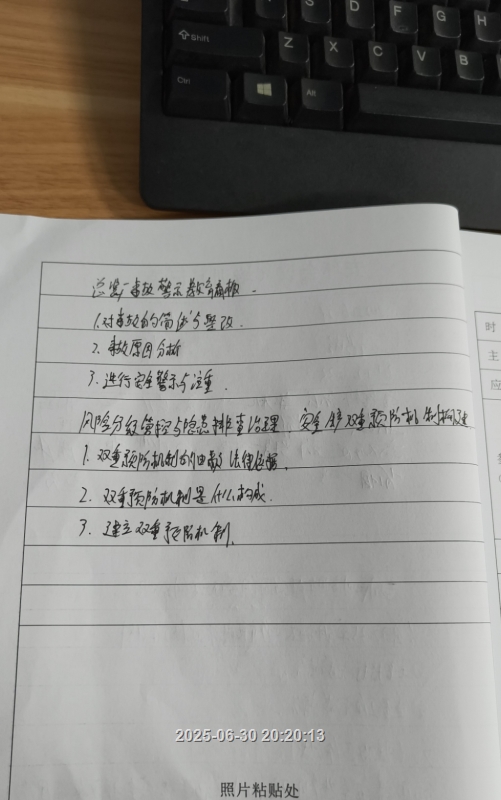 Shift
Z
X
C
V
B
S
D
F
G
H
Ctrl
Alt
事故警示教育
1.对事故的简述与整改.
2.事故原因分析
3.进行安全警示与注重.
风险分级管控与隐患排查治理、安全生产双重预防机制构建
1.双重预防机制的由来 法律依据.
2.双重预防机制是什么构成.
3.建立双重预防机制.
时
主
应
2025-06-30 20:20:13
照片粘贴处